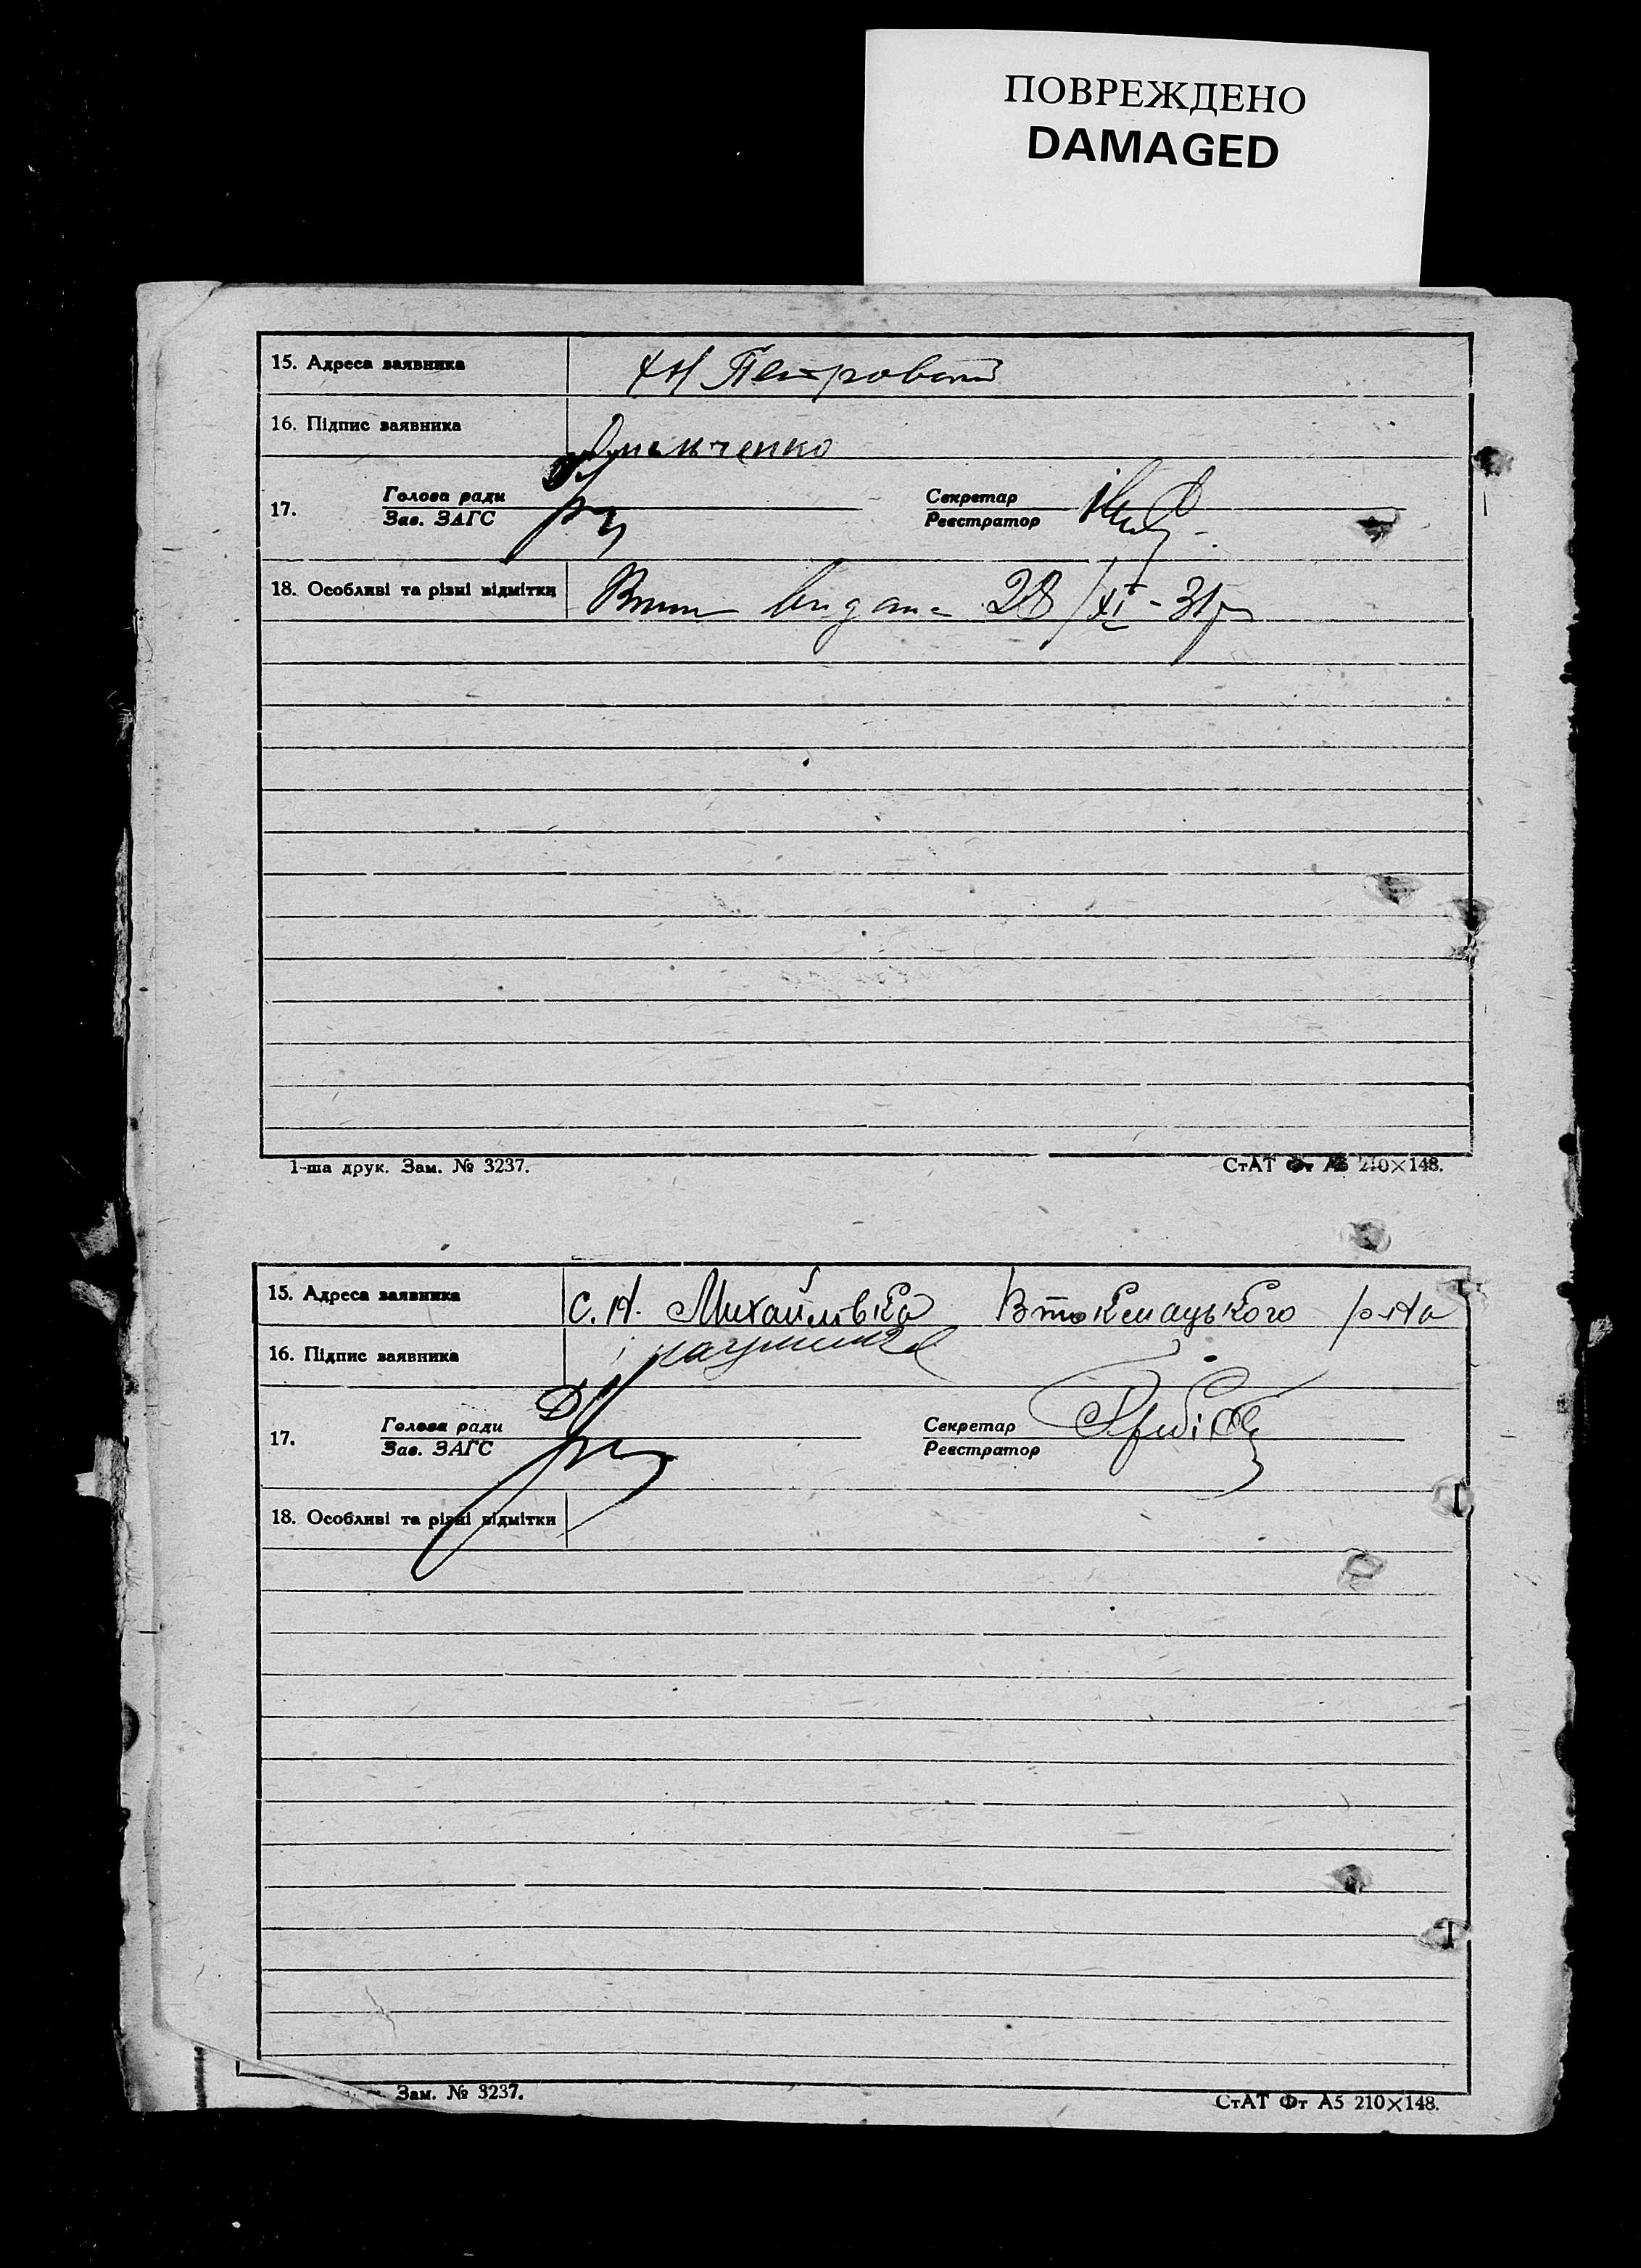 ПОВРЕЖДЕНО
DAMAGED
15. Адреса заявника
16. Підпис заявника
17. Голова ради Секретар
Зав. ЗАГС Реєстратор
18. Особливі та різні відмітки видана 28/XI-31р
1-ша друк. Зам. № 3237. СтАТ Фт А5 210×148.
15. Адреса заявника с. Н. Михайловка Втокмацького р-на
16. Підпис заявника
17. Голова ради Секретар
Зав. ЗАГС Реєстратор
18. Особливі та різні відмітки
Зам. № 3237. СтАТ Фт А5 210×148.